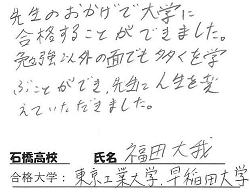 先生のおかげで大学に
合格することができました。
勉強以外の面でも多くを学
ぶことができ、先生に人生を変
えていただきました。
石橋高校 氏名 福田大我
合格大学： 東京工業大学、早稲田大学